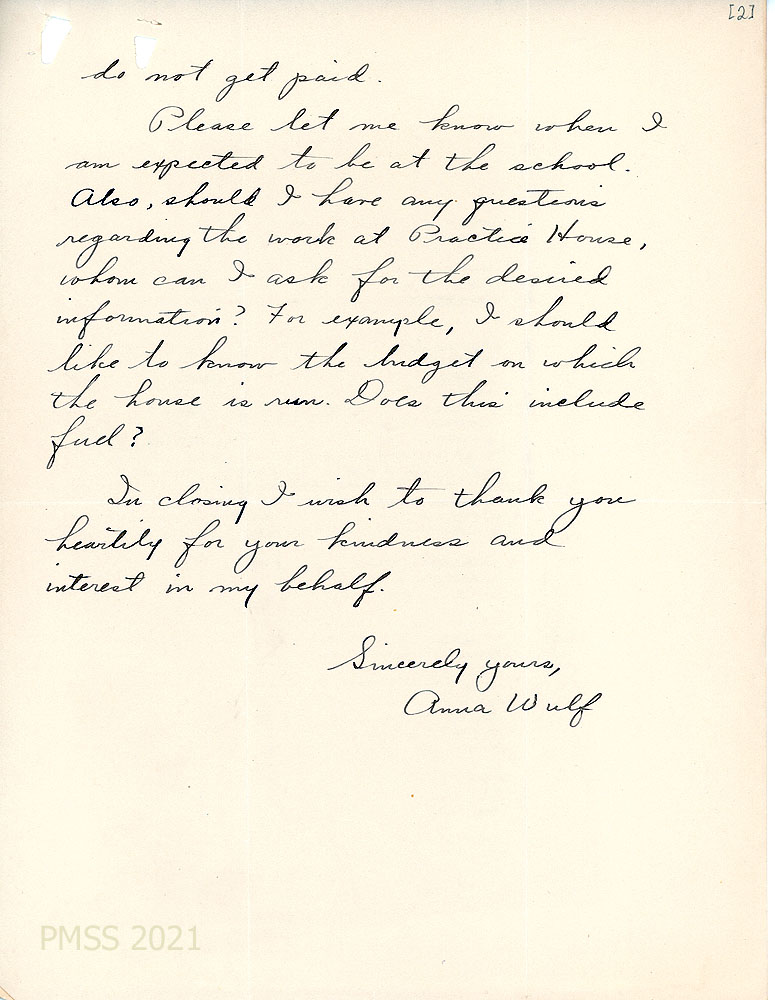 [2]
do not get paid.
Please let me know when I
am expected to be at the school.
Also, should I have any questions
regarding the work at Practice House,
whom can I ask for the desired
information? For example, I should
like to know the budget on which
the house is run. Does this include
fuel?
In closing I wish to thank you
heartily for your kindness and
interest in my behalf.
Sincerely yours,
Anna Wulf
PMSS 2021